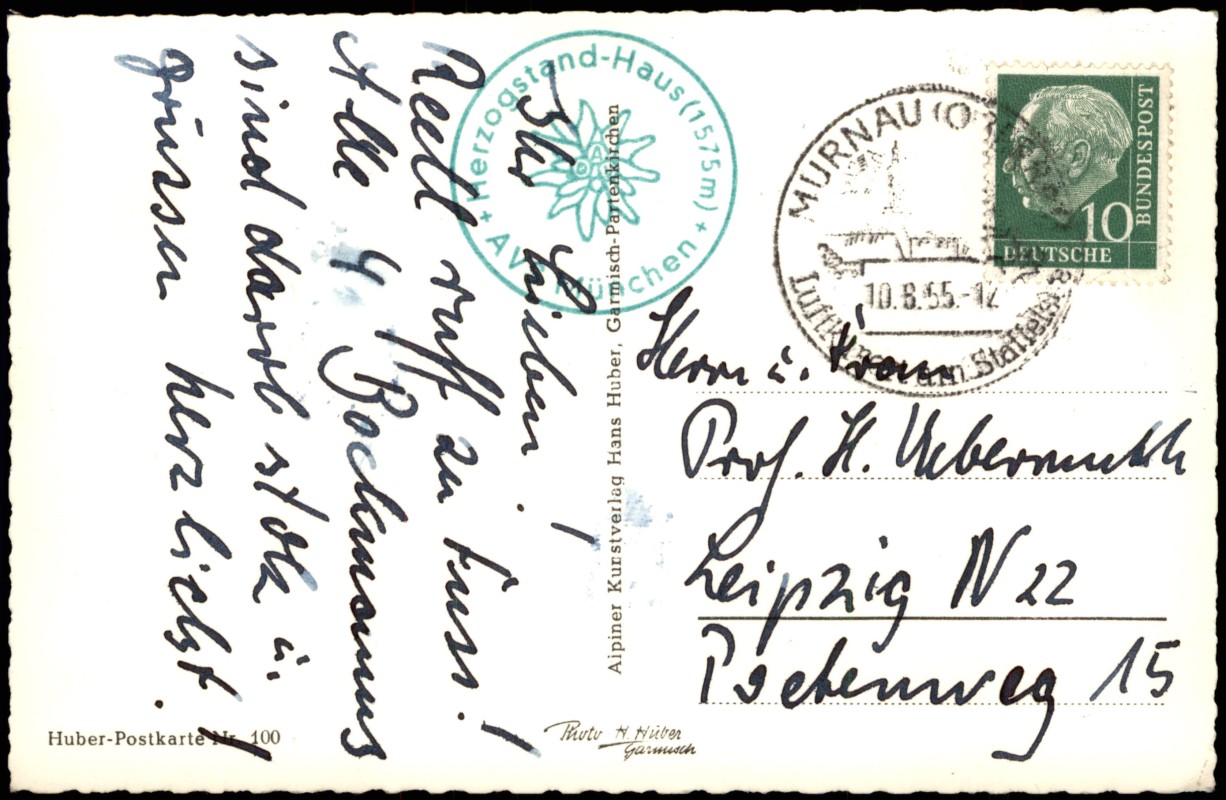 Ihr Lieben!
Recht rauf zu Fuss!
Alle 4 Bockmanns
sind darob stolz u.
grüssen herzlichst!
+ Herzogstand-Haus (1575m) +
AVS München
Alpiner Kunstverlag Hans Huber, Garmisch-Partenkirchen
MURNAU (O
10.8.55.-12
Staffelsee
10
DEUTSCHE
BUNDESPOST
Herrn u. Frau
Prof. H. Uebermuth
Leipzig N 22
Pschenweg 15
Huber-Postkarte Nr. 100
Photo H. Huber
Garmisch